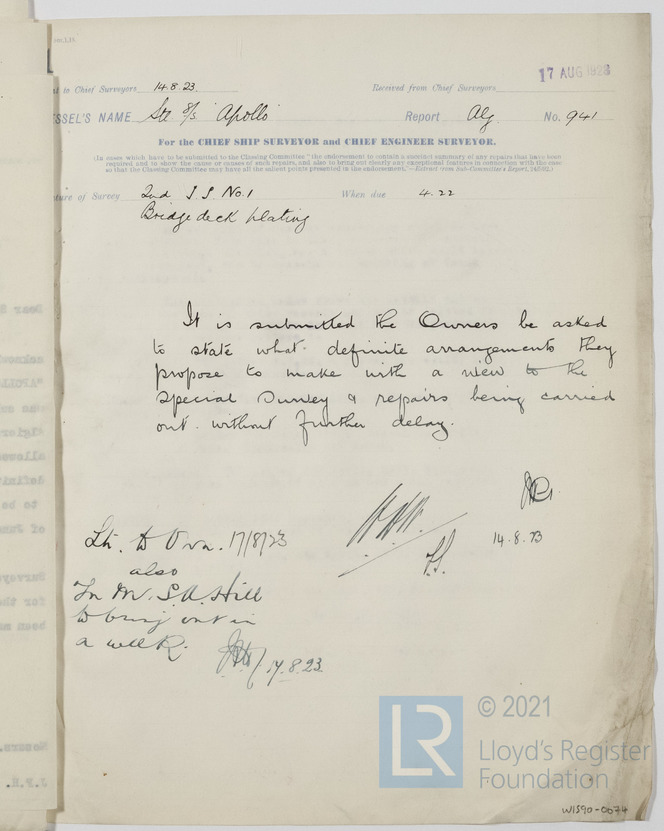 17 AUG 1923
to Chief Surveyors 14.8.23. Received from Chief Surveyors
ESSEL'S NAME Stl S/S 'Apollo' Report Alg. No. 941
For the CHIEF SHIP SURVEYOR and CHIEF ENGINEER SURVEYOR.
(In cases which have to be submitted to the Classing Committee "the endorsement to contain a succinct summary of any repairs that have been
required and to show the cause or causes of such repairs, and also to bring out clearly any exceptional features in connection with the case
so that the Classing Committee may have all the salient points presented in the endorsement."—Extract from Sub-Committee's Report,
ture of Survey 2nd S.S. No. 1 When due 4.22
Bridge deck plating
It is submitted the Owners be asked
to state what definite arrangements they
propose to make with a view to the
Special Survey & repairs being carried
out without further delay.
14.8.23
Ltr. to Own. 17/8/23
also
In Mr. S.A. Hill
to bring out in
a week.
17.8.23
LR © 2021
Lloyd's Register
Foundation
W1590-0074